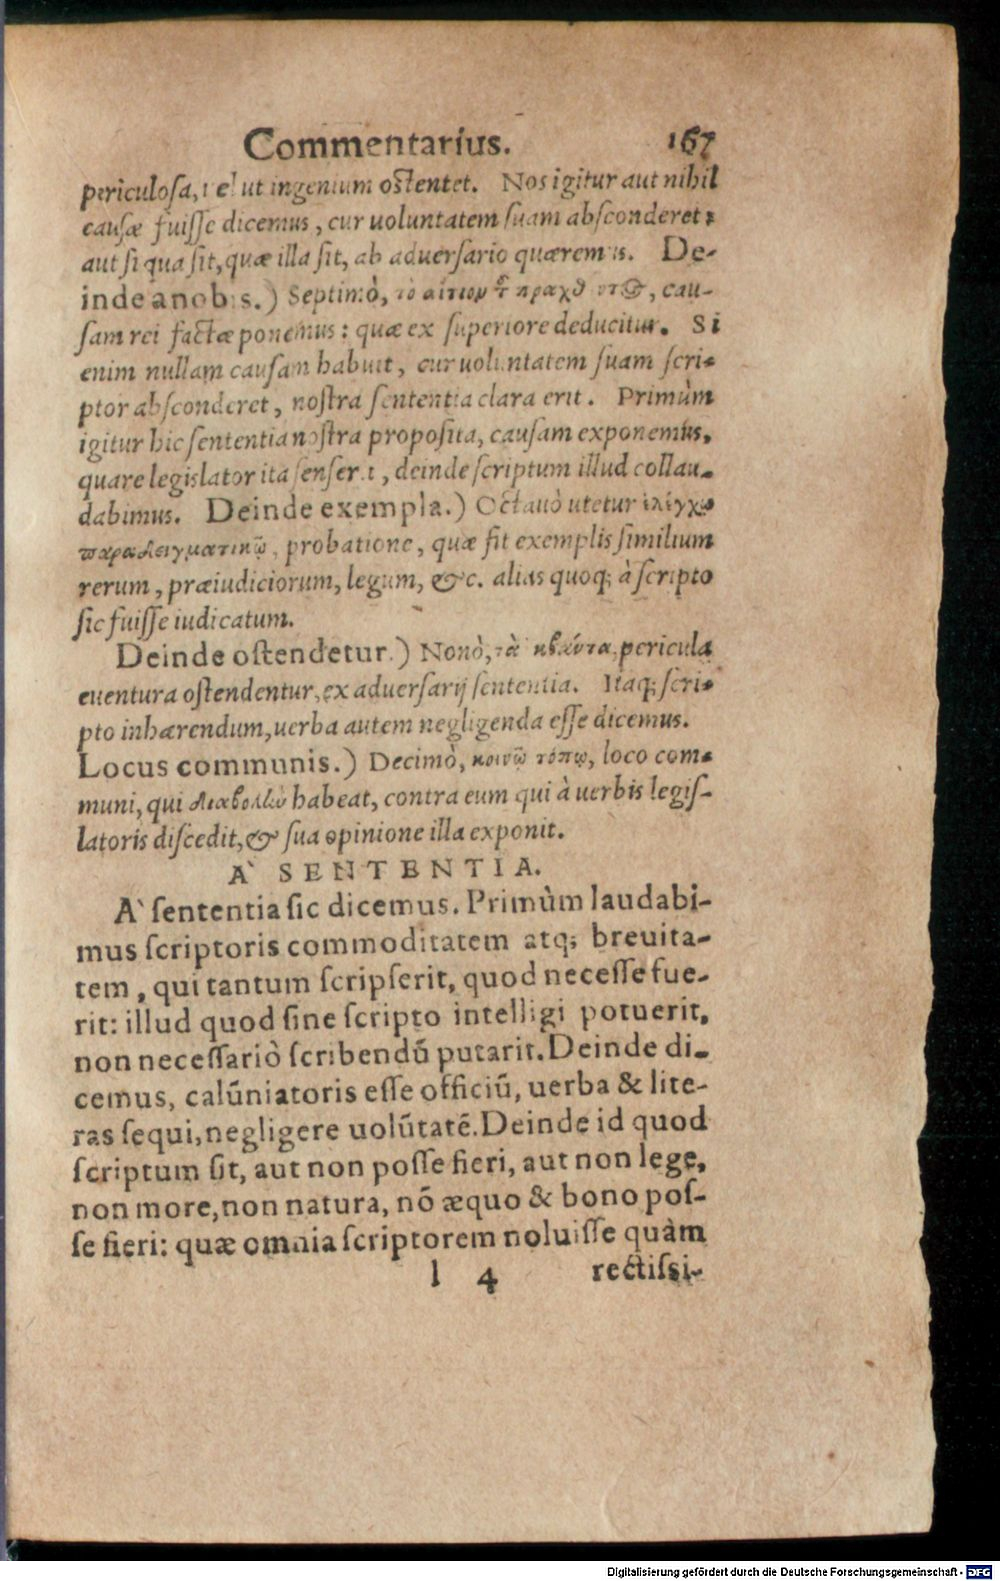 Commentarius. 167
periculosa, uel ut ingenium ostentet. Nos igitur aut nihil
causæ fuisse dicemus, cur uoluntatem suam absconderet:
aut si qua sit, quæ illa sit, ab aduersario quæremus. De-
inde a nobis.) Septimò, τὸ αἴτιον τ̃ πραχθέντος, cau-
sam rei factæ ponemus: quæ ex superiore deducitur. Si
enim nullam causam habuit, cur uoluntatem suam scri-
ptor absconderet, nostra sententia clara erit. Primùm
igitur hic sententia nostra proposita, causam exponemus,
quare legislator ita senserit, deinde scriptum illud collau-
dabimus. Deinde exempla.) Octauò utetur ἐλέγχῳ
παραδειγματικῷ, probatione, quæ fit exemplis similium
rerum, præiudiciorum, legum, &c. alias quoq; à scripto
sic fuisse iudicatum.
Deinde ostendetur.) Nonò, τὰ pericula
euentura ostendentur, ex aduersarij sententia. Itaq; scri-
pto inhærendum, uerba autem negligenda esse dicemus.
Locus communis.) Decimò, κοινῷ τόπῳ, loco com-
muni, qui διαβολὴν habeat, contra eum qui à uerbis legis-
latoris discedit, & sua opinione illa exponit.
A` SENTENTIA.
A` sententia sic dicemus. Primùm laudabi-
mus scriptoris commoditatem atq; breuita-
tem, qui tantum scripserit, quod necesse fue-
rit: illud quod sine scripto intelligi potuerit,
non necessariò scribendū putarit. Deinde di-
cemus, calūniatoris esse officiū, uerba & lite-
ras sequi, negligere uolūtatē. Deinde id quod
scriptum sit, aut non posse fieri, aut non lege,
non more, non natura, nō æquo & bono pos-
se fieri: quæ omnia scriptorem noluisse quàm
l 4 rectissi-
Digitalisierung gefördert durch die Deutsche Forschungsgemeinschaft - DFG